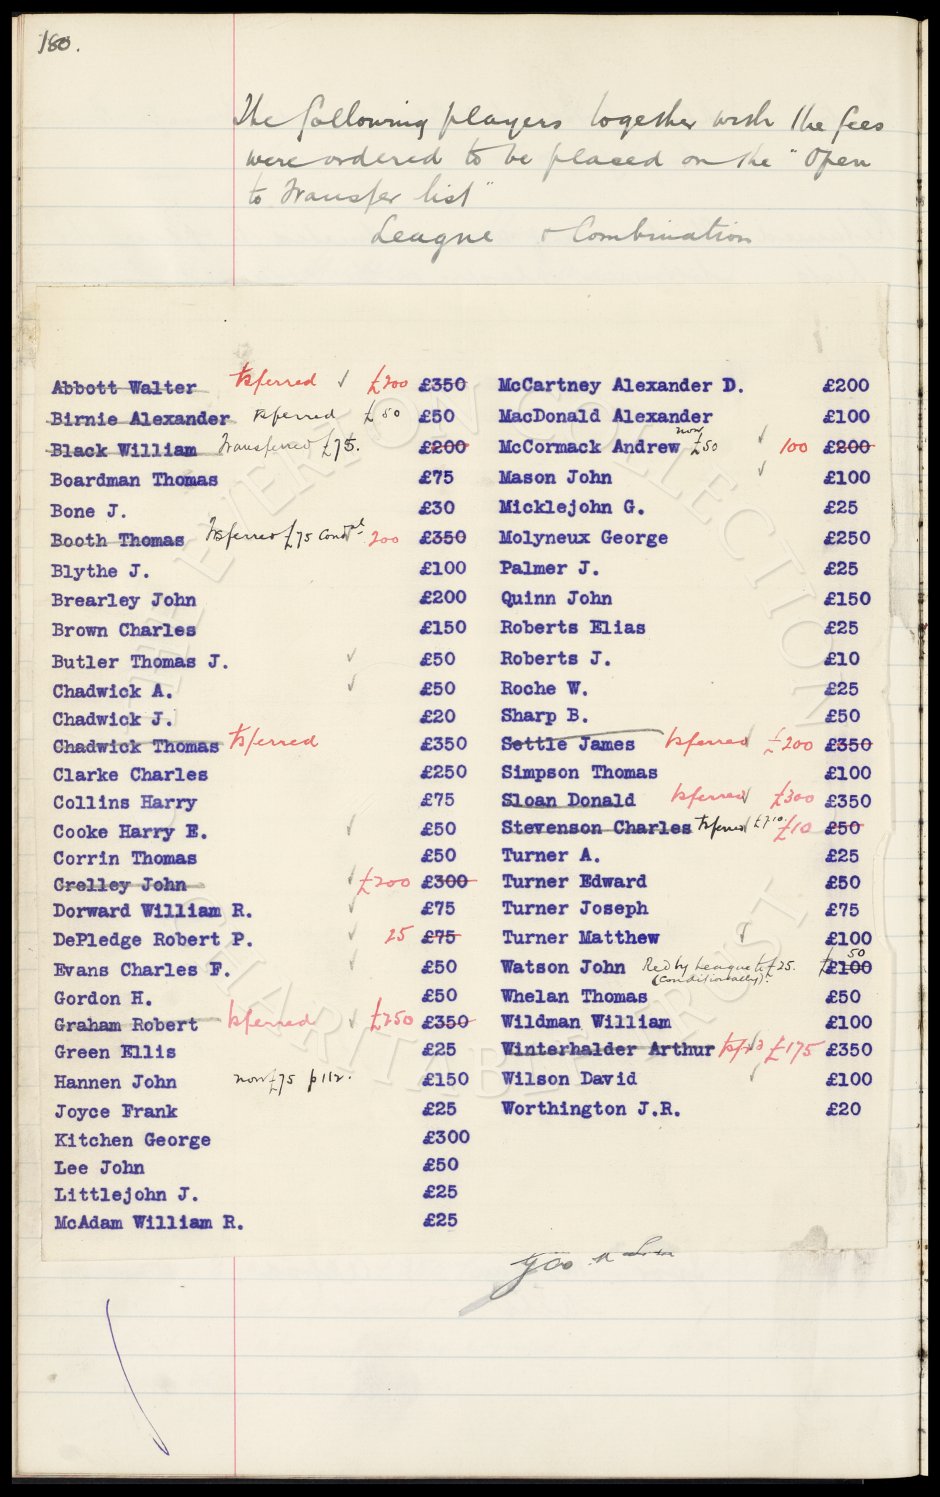 180.
The following players together with the fees
were ordered to be placed on the "Open
to Transfer list"
League & Combination
Abbott Walter tsferred £200 £350
Birnie Alexander tsferred £50 £50
Black William Transferred £75. £200
Boardman Thomas £75
Bone J. £30
Booth Thomas Tsferred £75 200 £350
Blythe J. £100
Brearley John £200
Brown Charles £150
Butler Thomas J. £50
Chadwick A. £50
Chadwick J. £20
Chadwick Thomas tsferred £350
Clarke Charles £250
Collins Harry £75
Cooke Harry E. £50
Corrin Thomas £50
Crelley John £200 £300
Dorward William R. £75
DePledge Robert P. 25 £75
Evans Charles F. £50
Gordon H. £50
Graham Robert tsferred £250 £350
Green Ellis £25
Hannen John now £75 p 112. £150
Joyce Frank £25
Kitchen George £300
Lee John £50
Littlejohn J. £25
McAdam William R. £25
McCartney Alexander D. £200
MacDonald Alexander £100
McCormack Andrew now £50 100 £200
Mason John £100
Micklejohn G. £25
Molyneux George £250
Palmer J. £25
Quinn John £150
Roberts Elias £25
Roberts J. £10
Roche W. £25
Sharp B. £50
Settle James tsferred £200 £350
Simpson Thomas £100
Sloan Donald tsferred £300 £350
Stevenson Charles tsferred £10 £50
Turner A. £25
Turner Edward £50
Turner Joseph £75
Turner Matthew £100
Watson John Red by League to £25. 50 £100
(conditionally)
Whelan Thomas £50
Wildman William £100
Winterhalder Arthur tsfrd £175 £350
Wilson David £100
Worthington J.R. £20
THE EVERTON COLLECTION
CHARITABLE TRUST